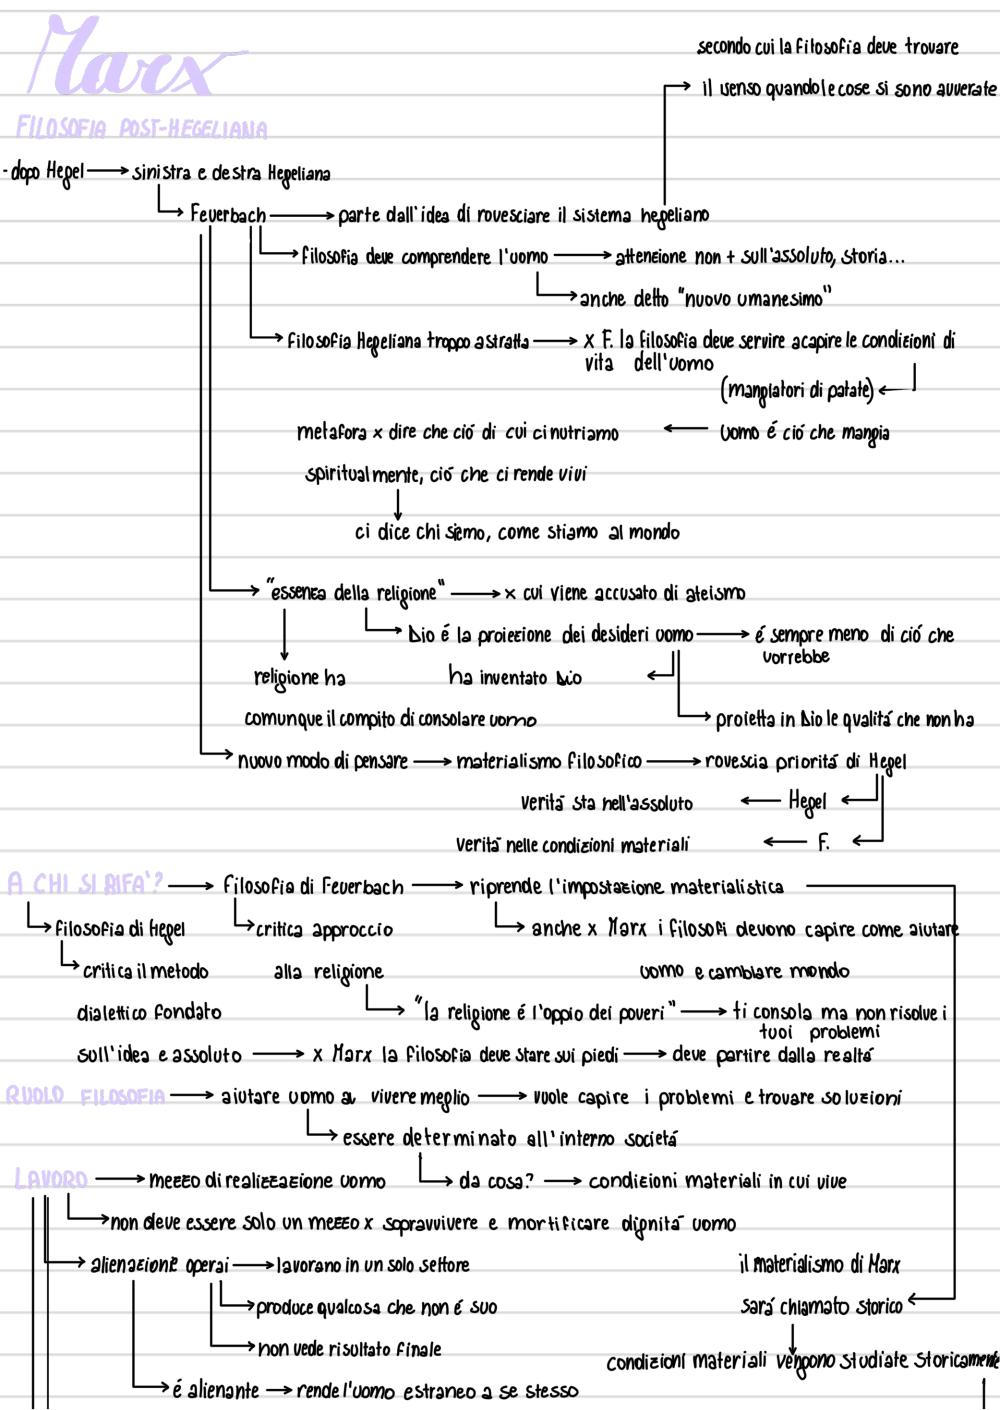 Marx
secondo cui la filosofia deve trovare
il senso quando le cose si sono avverate
FILOSOFIA POST-HEGELIANA
- dopo Hegel → sinistra e destra Hegeliana
Feuerbach → parte dall'idea di rovesciare il sistema hegeliano
filosofia deve comprendere l'uomo → attenzione non + sull'assoluto, storia...
anche detto "nuovo umanesimo"
filosofia Hegeliana troppo astratta → x F. la filosofia deve servire a capire le condizioni di
vita dell'uomo
(mangiatori di patate) ←
metafora x dire che ció di cui ci nutriamo ← uomo é ció che mangia
spiritualmente, ció che ci rende vivi
ci dice chi siemo, come stiamo al mondo
"essenza della religione" → x cui viene accusato di ateismo
Dio é la proiezione dei desideri uomo → é sempre meno di ció che
vorrebbe
religione ha ha inventato Dio ←
comunque il compito di consolare uomo → proietta in Dio le qualitá che non ha
nuovo modo di pensare → materialismo filosofico → rovescia prioritá di Hegel
veritá sta nell'assoluto ← Hegel ←
veritá nelle condizioni materiali ← F. ←
A CHI SI RIFA'? → filosofia di Feuerbach → riprende l'impostazione materialistica
filosofia di Hegel critica approccio → anche x Marx i filosofi devono capire come aiutare
critica il metodo alla religione uomo e cambiare mondo
dialettico fondato → "la religione é l'oppio dei poveri" → ti consola ma non risolve i
tuoi problemi
sull'idea e assoluto → x Marx la filosofia deve stare sui piedi → deve partire dalla realtá
RUOLO FILOSOFIA → aiutare uomo a vivere meglio → vuole capire i problemi e trovare soluzioni
essere determinato all'interno societá
LAVORO → mezzo di realizzazione uomo → da cosa? → condizioni materiali in cui vive
non deve essere solo un mezzo x sopravvivere e mortificare dignitá uomo
alienazione operai → lavorano in un solo settore il materialismo di Marx
produce qualcosa che non é suo sará chiamato storico ←
non vede risultato finale
condizioni materiali vengono studiate storicamente
é alienante → rende l'uomo estraneo a se stesso